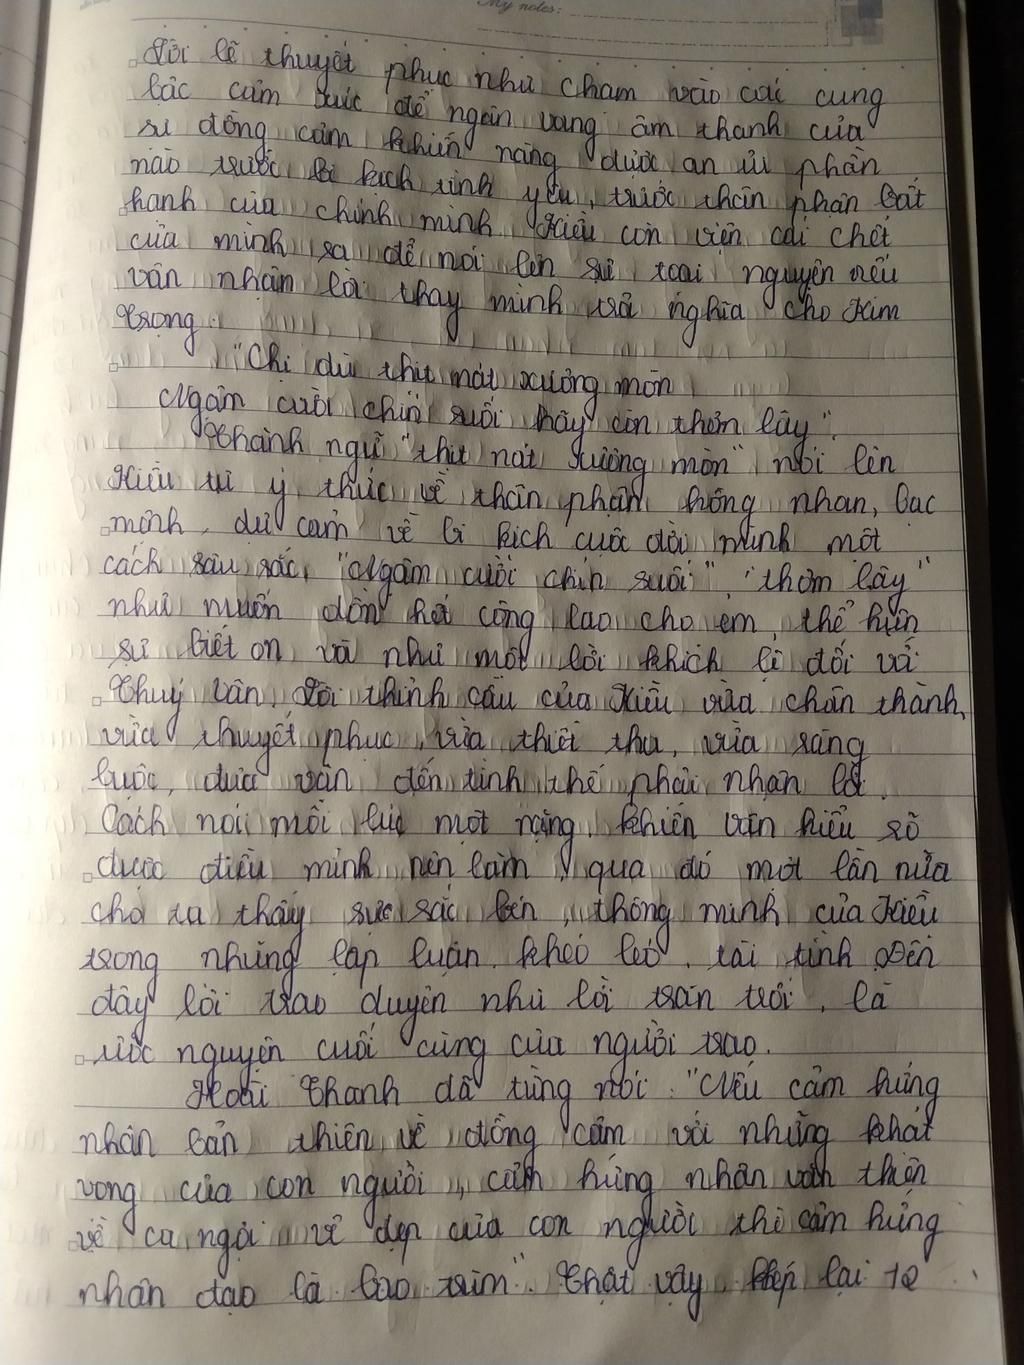 My notes:
Lời lẽ thuyết phục như chạm vào cái cung
bậc cảm xúc để ngân vang âm thanh của
sự đồng cảm khiến nàng được an ủi phần
nào trước bi kịch tình yêu, trước thân phận bất
hạnh của chính mình. Kiều còn viện cái chết
của mình ra để nói lên sự toại nguyện nếu
vân nhận lời thay mình trả nghĩa cho Kim
Trọng.
"Chị dù thịt nát xương mòn
Ngậm cười chín suối hãy còn thơm lây".
Thành ngữ "thịt nát xương mòn" nói lên
Kiều tự ý thức về thân phận hồng nhan, bạc
mệnh, dự cảm về bi kịch cuộc đời mình một
cách sâu sắc, "Ngậm cười chín suối", "thơm lây"
như muốn dồn hết công lao cho em, thể hiện
sự biết ơn và như một lời khích lệ đối với
Thuý Vân. Lời thỉnh cầu của Kiều vừa chân thành,
vừa thuyết phục, vừa thiết tha, vừa ràng
buộc, đưa vân đến tình thế phải nhận lời.
Cách nói mỗi lúc một nặng, khiến vân hiểu rõ
được điều mình nên làm, qua đó một lần nữa
cho ta thấy sực sắc bén, thông minh của Kiều
trong những lập luận khéo léo, tài tình. Đến
đây lời trao duyên như lời trăn trối, là
ước nguyện cuối cùng của người trao.
Hoài Thanh đã từng nói: "Nếu cảm hứng
nhân bản thiên về đồng cảm với những khát
vọng của con người, cảm hứng nhân văn thiên
về ca ngợi vẻ đẹp của con người thì cảm hứng
nhân đạo là bao trùm". Thật vậy, khép lại 12